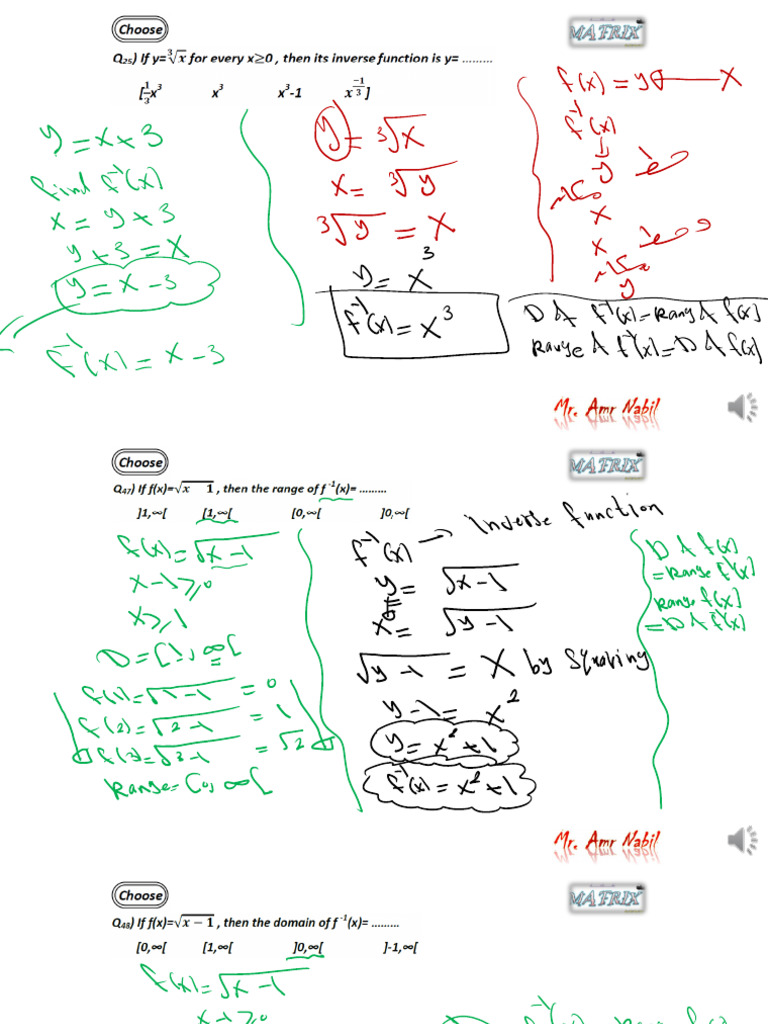 Choose
MATRIX
Q25) If y=∛x for every x≥0 , then its inverse function is y= .........
[⅓x³ x³ x³-1 x^(-1/3) ]
y = x + 3
find f⁻¹(x)
x = y + 3
y + 3 = x
y = x - 3
f⁻¹(x) = x - 3
y = ∛x
x = ∛y
∛y = x
y = x³
f⁻¹(x) = x³
f(x) = y x
f⁻¹(x)
y
x
x
y
D of f⁻¹(x) = Rang of f(x)
Range of f⁻¹(x) = D of f(x)
Mr. Amr Nabil
Choose
MATRIX
Q47) If f(x)=√x 1 , then the range of f⁻¹(x)= .........
]1,∞[ [1,∞[ [0,∞[ ]0,∞[
f(x) = √x-1
x-1 ≥ 0
x ≥ 1
D = [1, ∞[
f(1) = √1-1 = 0
f(2) = √2-1 = 1
f(3) = √3-1 = √2
Range = [0, ∞[
f⁻¹(x) → inverse function
y = √x-1
x = √y-1
√y-1 = x by squaring
y-1 = x²
y = x²+1
f⁻¹(x) = x²+1
D of f(x)
= Range f⁻¹(x)
Range f(x)
= D of f⁻¹(x)
Mr. Amr Nabil
Choose
MATRIX
Q48) If f(x)=√x − 1 , then the domain of f⁻¹(x)= .........
[0,∞[ [1,∞[ ]0,∞[ ]-1,∞[
f(x) = √x-1
x-1 ≥ 0